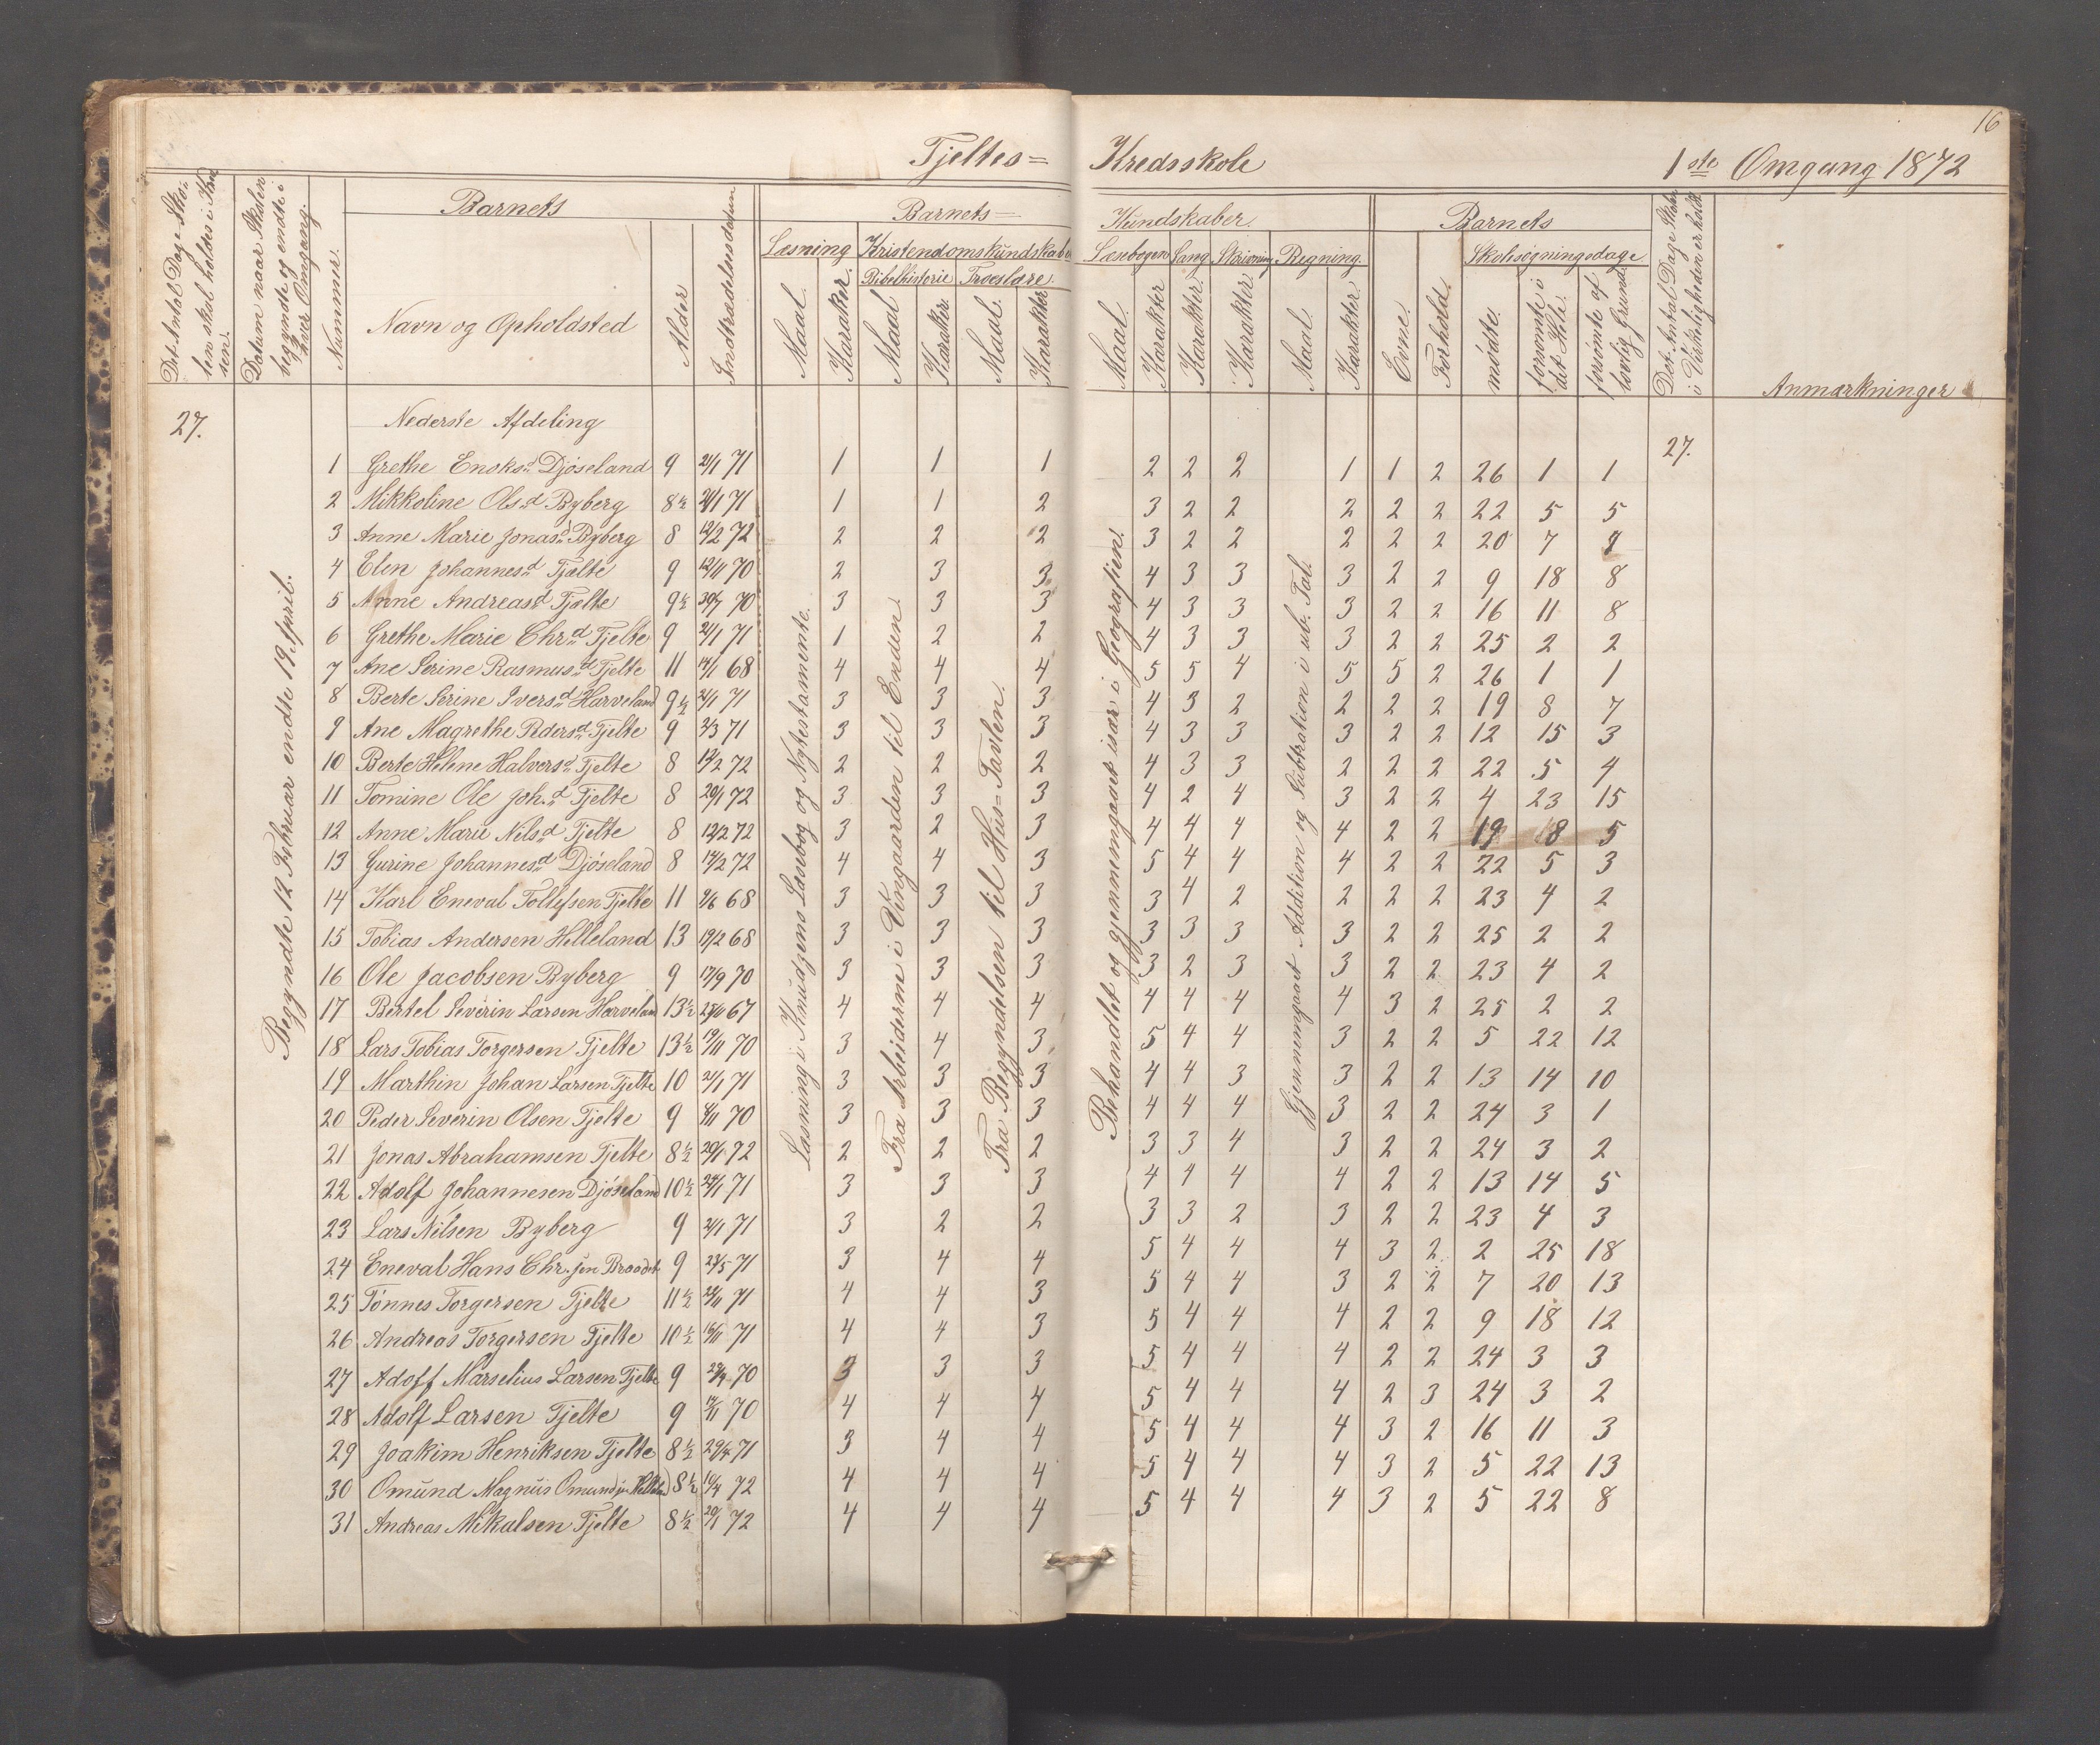 16
Tjeltes= Kredsskole 1ste Omgang 1872
Det Antal Dage Skolen skal holdes i Kredsen.
Datum naar Skolen begyndte og endte i hver Omgang.
Nummer.
Barnets
Navn og Opholdsted
Alder
Indtrædelsesdatum
Barnets= Kundskaber.
Læsning
Maal.
Karakter.
Kristendomskundskaber
Bibelhistorie
Maal
Karakter.
Troeslære.
Maal.
Karakter
Læsebogen
Maal.
Karakter
Sang
Karakter.
Skrivning
Karakter
Regning.
Maal.
Karakter.
Barnets
Evne.
Forhold.
Skolesøgningsdage
mødte.
forsømte i det Hele.
forsømte af lovlig Grund
Det Antal Dage Skolen i Virkeligheden er holdt
Anmærkninger
27.
Nederste Afdeling
27.
Begyndte 12 Februar endte 19 April.
Læsning i Knudzens Læsebog og Nytestamente.
Fra Arbeiderne i Vingaarden til Enden.
Fra Begyndelsen til Hus=Tavlen.
Behandlet og gjennemgaaet især i Geografien.
Gjennemgaaet Addition og Subtration i ub. Tal.
1 Grethe Enoksd. Djøseland 9 21/1 71 1 1 1 2 2 2 1 1 2 26 1 1
2 Mikkoline Olsd. Byberg 8½ 21/1 71 1 1 2 3 2 2 2 2 2 22 5 5
3 Anne Marie Jonasd. Byberg 8 12/2 72 2 2 2 3 2 2 2 2 2 20 7
4 Elen Johannesd. Tjelte 9 12/11 70 2 3 3 4 3 3 3 2 2 9 18 8
5 Anne Andreasd. Tjelte 9½ 70 3 3 3 4 3 3 3 2 2 16 11 8
6 Grethe Marie Chrd. Tjelte 9 21/1 71 1 2 2 4 3 3 3 2 2 25 2 2
7 Ane Serine Rasmusd. Tjelte 11 68 4 4 4 5 5 4 5 5 2 26 1 1
8 Berte Serine Iversd. Harveland 9½ 21/1 71 3 3 3 4 3 2 2 2 2 19 8 7
9 Ane Magrethe Pedersd. Tjelte 9 2/3 71 3 3 3 4 3 3 3 2 2 12 15 3
10 Berte Helene Halvorsd. Tjelte 8 72 2 2 2 4 3 3 2 2 2 22 5 4
11 Tomine Ole Joh.d. Tjelte 8 20/1 72 3 3 3 4 2 4 3 2 2 4 23 15
12 Anne Marie Nilsd. Tjelte 8 12/2 72 3 2 3 4 4 4 4 2 2 19 8 5
13 Gurine Johannesd. Djøseland 8 14/2 72 4 4 3 5 4 4 4 2 2 22 5 3
14 Karl Eneval Tollefsen Tjelte 11 68 3 3 3 3 4 2 2 2 2 23 4 2
15 Tobias Andersen Helleland 13 19/2 68 3 3 3 3 3 3 3 2 2 25 2 2
16 Ole Jacobsen Byberg 9 17/9 70 3 3 3 3 2 3 3 2 2 23 4 2
17 Bertel Severin Larsen Harveland 13½ 67 4 4 4 4 4 4 4 3 2 25 2 2
18 Lars Tobias Torgersen Tjelte 13½ 19/11 70 3 4 3 5 4 4 3 2 2 5 22 12
19 Marthin Johan Larsen Tjelte 10 21/1 71 3 3 3 4 4 3 3 2 2 13 14 10
20 Peder Severin Olsen Tjelte 9 70 3 3 3 4 4 4 3 2 2 24 3 1
21 Jonas Abrahamsen Tjelte 8½ 20/1 72 2 2 2 3 3 4 3 2 2 24 3 2
22 Adolf Johannesen Djøseland 10½ 71 3 3 3 4 4 4 4 2 2 13 14 5
23 Lars Nilsen Byberg 9 21/1 71 3 2 2 3 3 2 3 2 2 23 4 3
24 Eneval Hans Chr.sen 9 23/5 71 3 4 4 5 4 4 4 3 2 2 25 18
25 Tønnes Torgersen Tjelte 11½ 71 4 4 3 5 4 4 3 2 2 7 20 13
26 Andreas Torgersen Tjelte 10½ 71 4 4 3 5 4 4 4 2 2 9 18 12
27 Adoff Marselius Larsen Tjelte 9 70 3 3 3 5 4 4 4 2 2 24 3 3
28 Adolf Larsen Tjelte 9 70 4 4 4 5 4 4 4 2 3 24 3 2
29 Joakim Henriksen Tjelte 8½ 71 3 4 4 5 4 4 4 3 2 16 11 3
30 Omund Magnus Omundsen 8½ 72 4 4 4 5 4 4 4 3 2 5 22 13
31 Andreas Mikalsen Tjelte 8½ 20/1 72 4 4 4 5 4 4 4 3 2 5 22 8